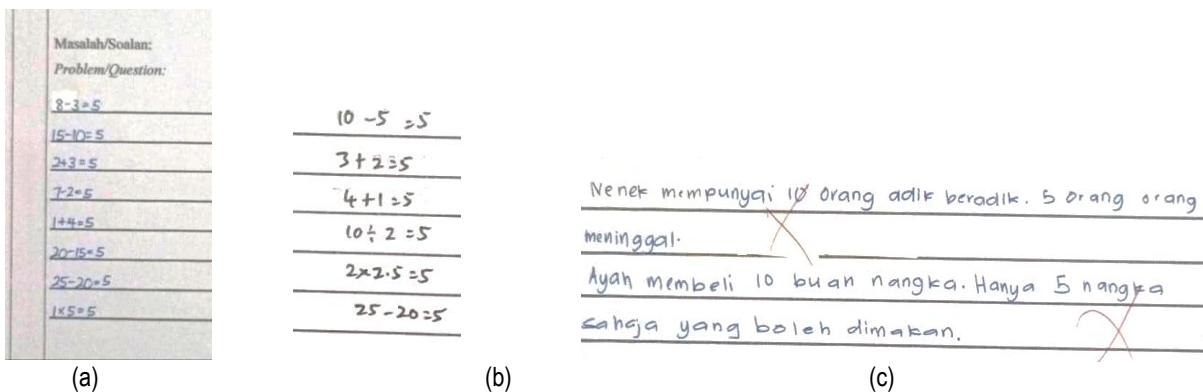 Masalah/Soalan:
Problem/Question:
8-3=5
15-10=5
2+3=5
7-2=5
1+4=5
20-15=5
25-20=5
1x5=5
(a)
10 - 5 = 5
3 + 2 = 5
4 + 1 = 5
10 ÷ 2 = 5
2 x 2.5 = 5
25 - 20 = 5
(b)
Nenek mempunyai 10 orang adik beradik. 5 orang orang
meninggal.
Ayah membeli 10 buah nangka. Hanya 5 nangka
sahaja yang boleh dimakan.
(c)